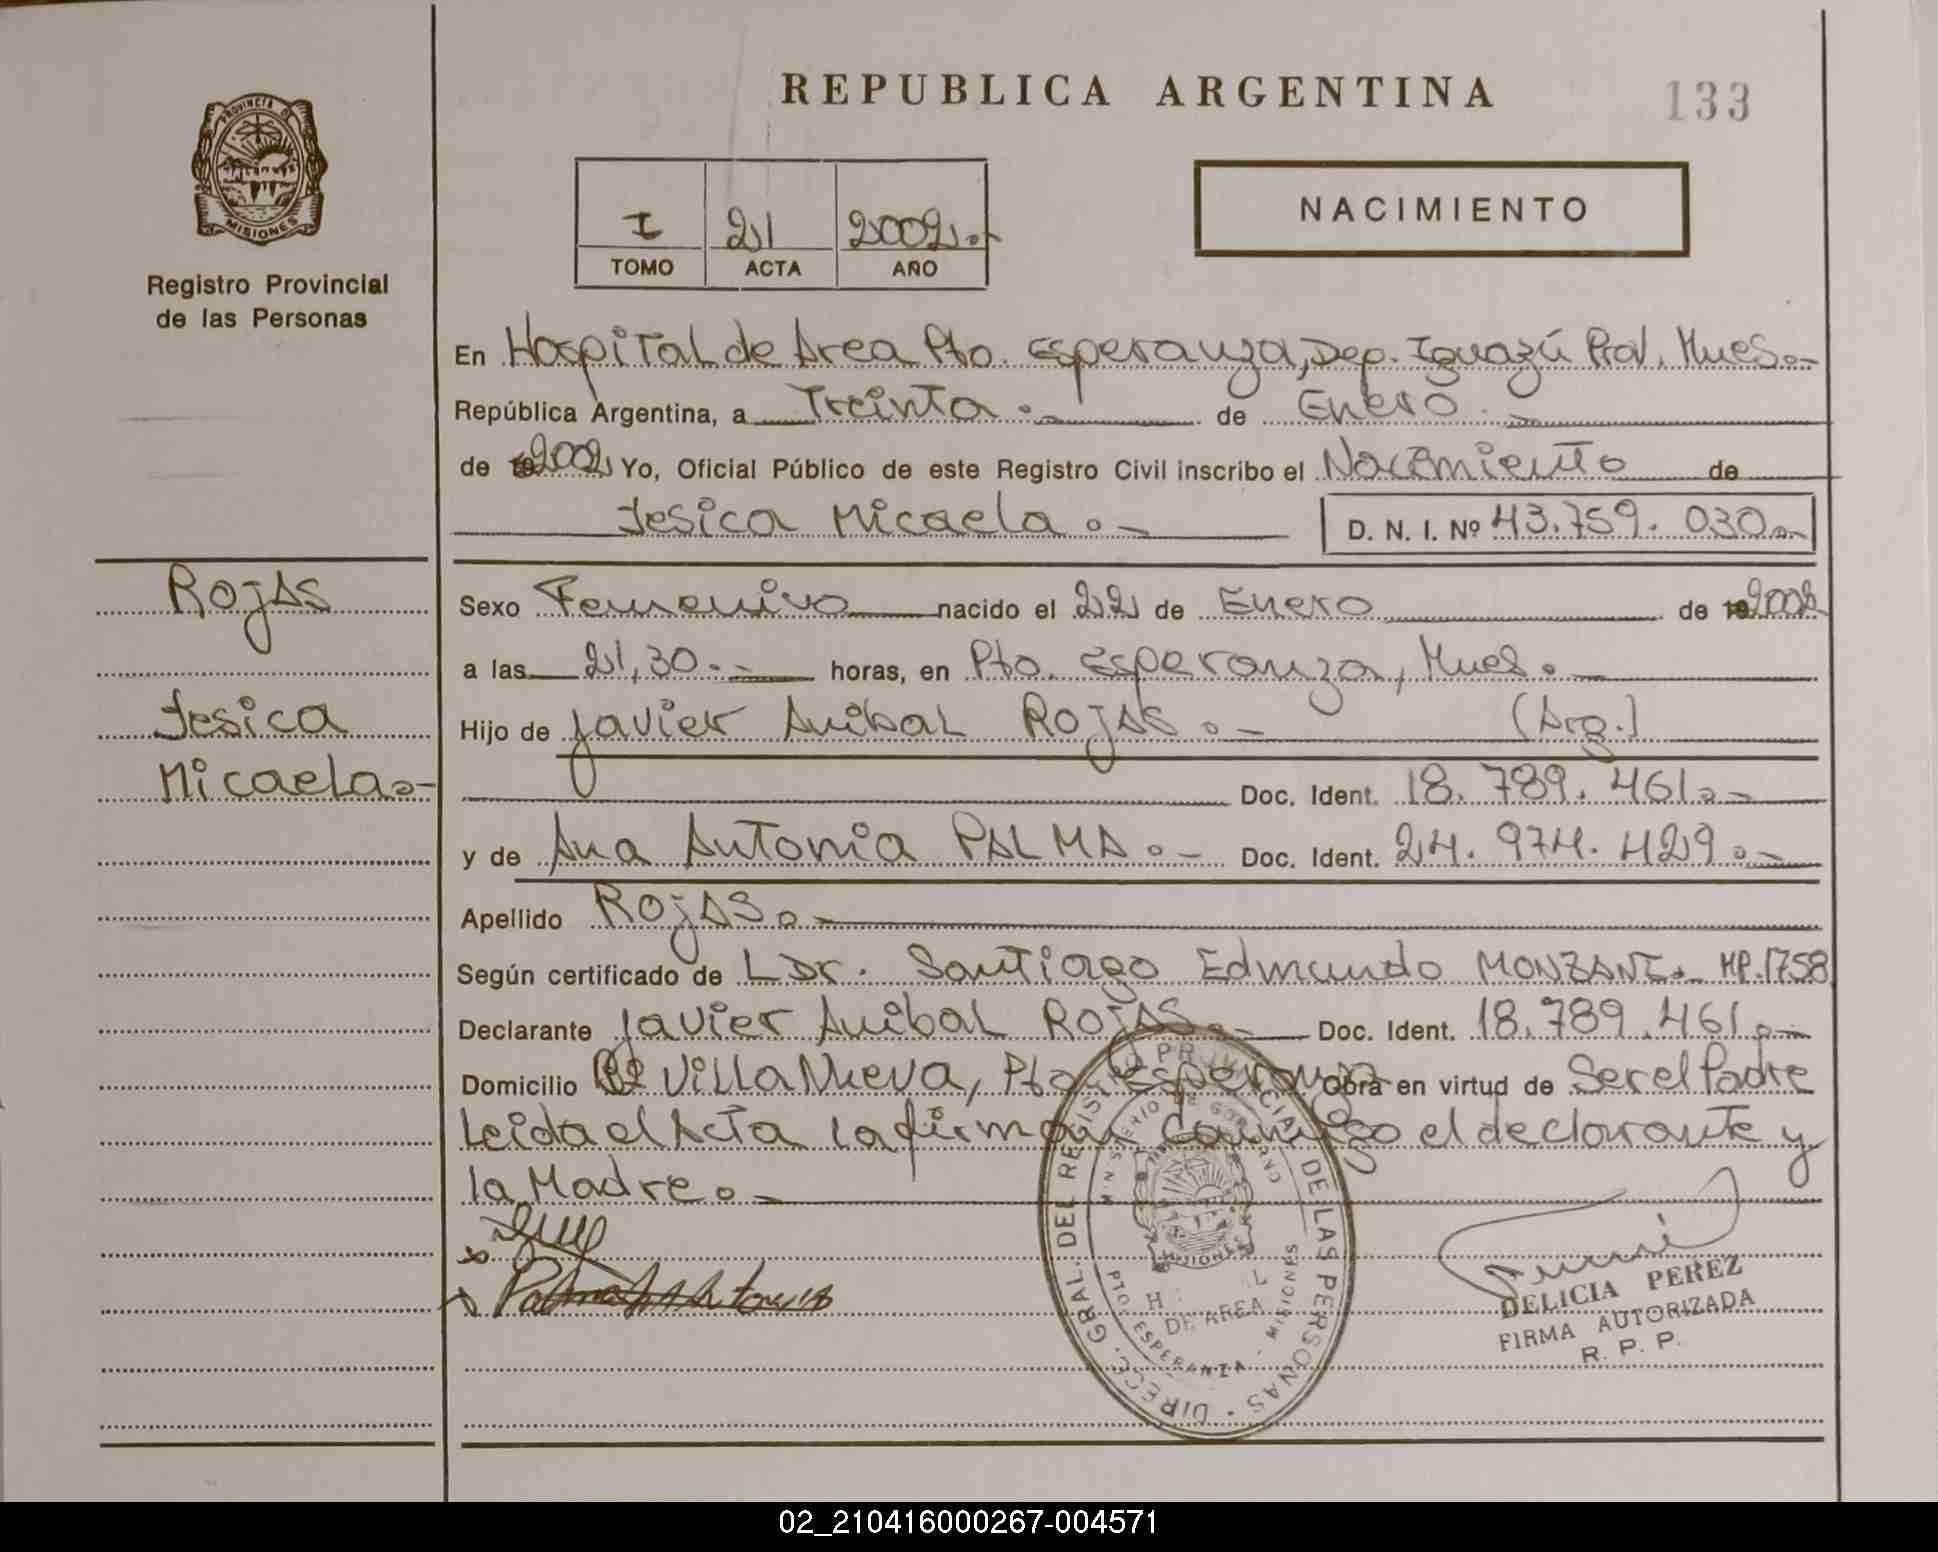 REPUBLICA ARGENTINA
133
PROVINCIA DE
MISIONES
Registro Provincial
de las Personas
I 21 2002.-
TOMO ACTA AÑO
NACIMIENTO
En Hospital de Area Pto. Esperanza, Dep. Iguazú Prov. Mnes.-
República Argentina, a Treinta.- de Enero.-
de 2002 Yo, Oficial Público de este Registro Civil inscribo el Nacimiento de
Jesica Micaela.- D. N. I. Nº 43.759.030.-
Rojas
Jesica
Micaela.-
Sexo Femenino nacido el 22 de Enero de 2002
a las 21,30.- horas, en Pto. Esperanza, Mnes.
Hijo de Javier Anibal Rojas.- (Arg.)
Doc. Ident. 18.789.461.-
y de Ana Antonia PALMA.- Doc. Ident. 24.974.429.-
Apellido Rojas.-
Según certificado de L Dr. Santiago Edmundo MONZANI.- MP.1758
Declarante Javier Anibal Rojas.- Doc. Ident. 18.789.461.-
Domicilio Villa Nueva, Pto. Esperanza Obra en virtud de Ser el Padre
Leida el Acta la firman Conmigo el declarante y
la Madre.-
Palma Antonia
DIRECC. GRAL. DEL REGISTRO PROVINCIAL DE LAS PERSONAS
MINISTERIO DE GOBIERNO
MISIONES
DE AREA
PTO. ESPERANZA - MISIONES
DELICIA PEREZ
FIRMA AUTORIZADA
R. P. P.
02_210416000267-004571